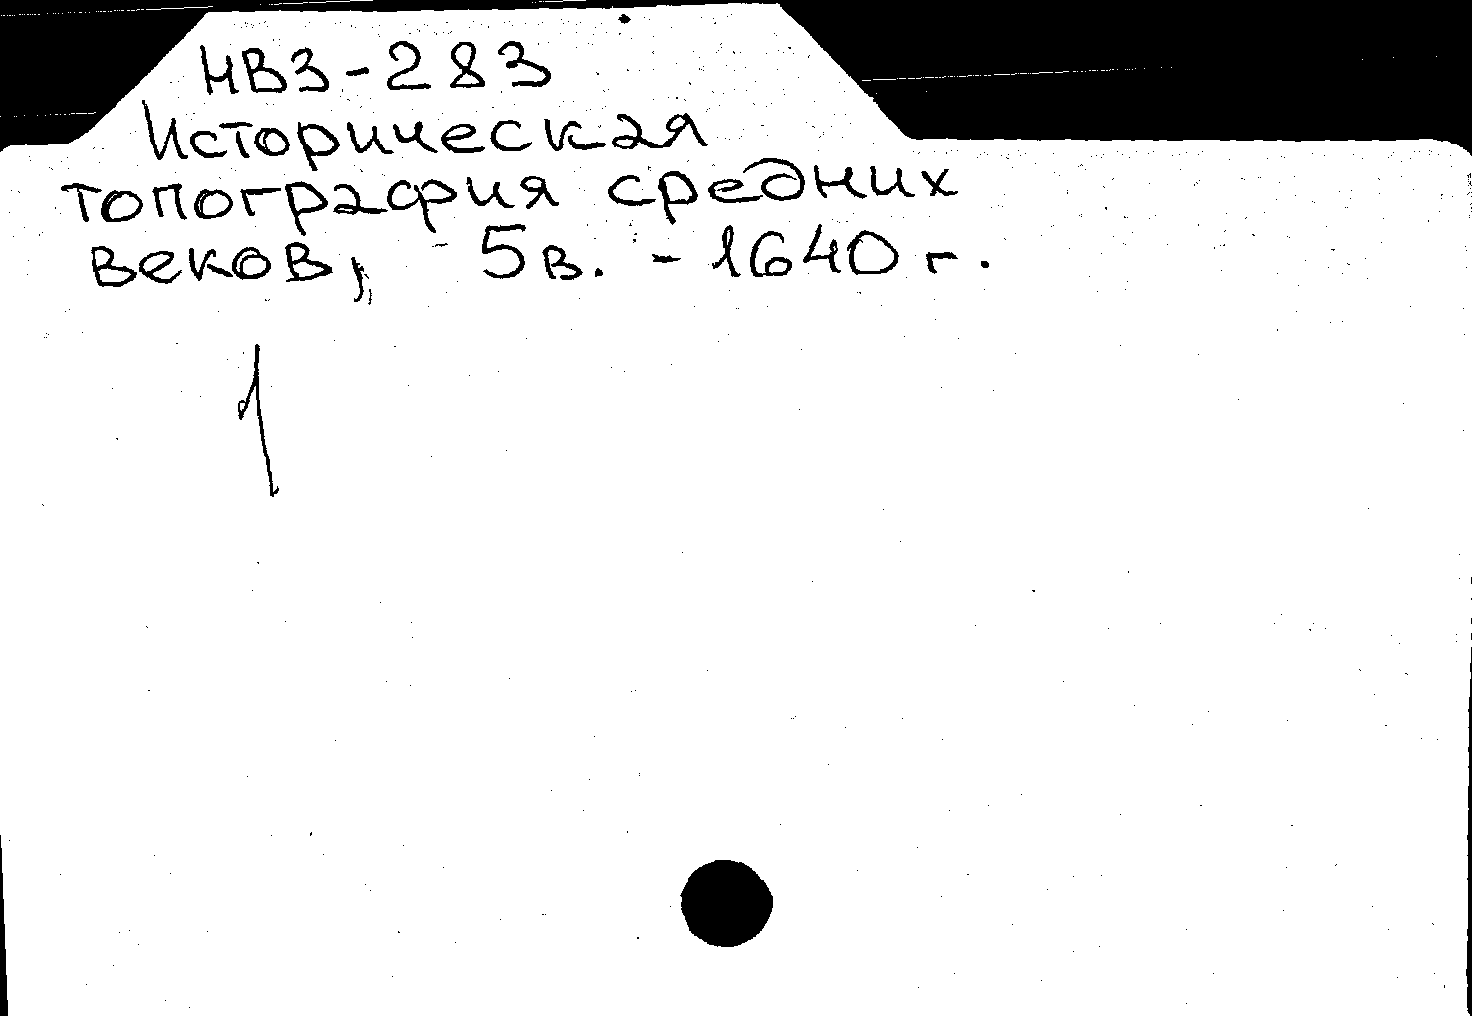 НВ3-283
Историческая
топография средних
веков, 5в. - 1640 г.
1